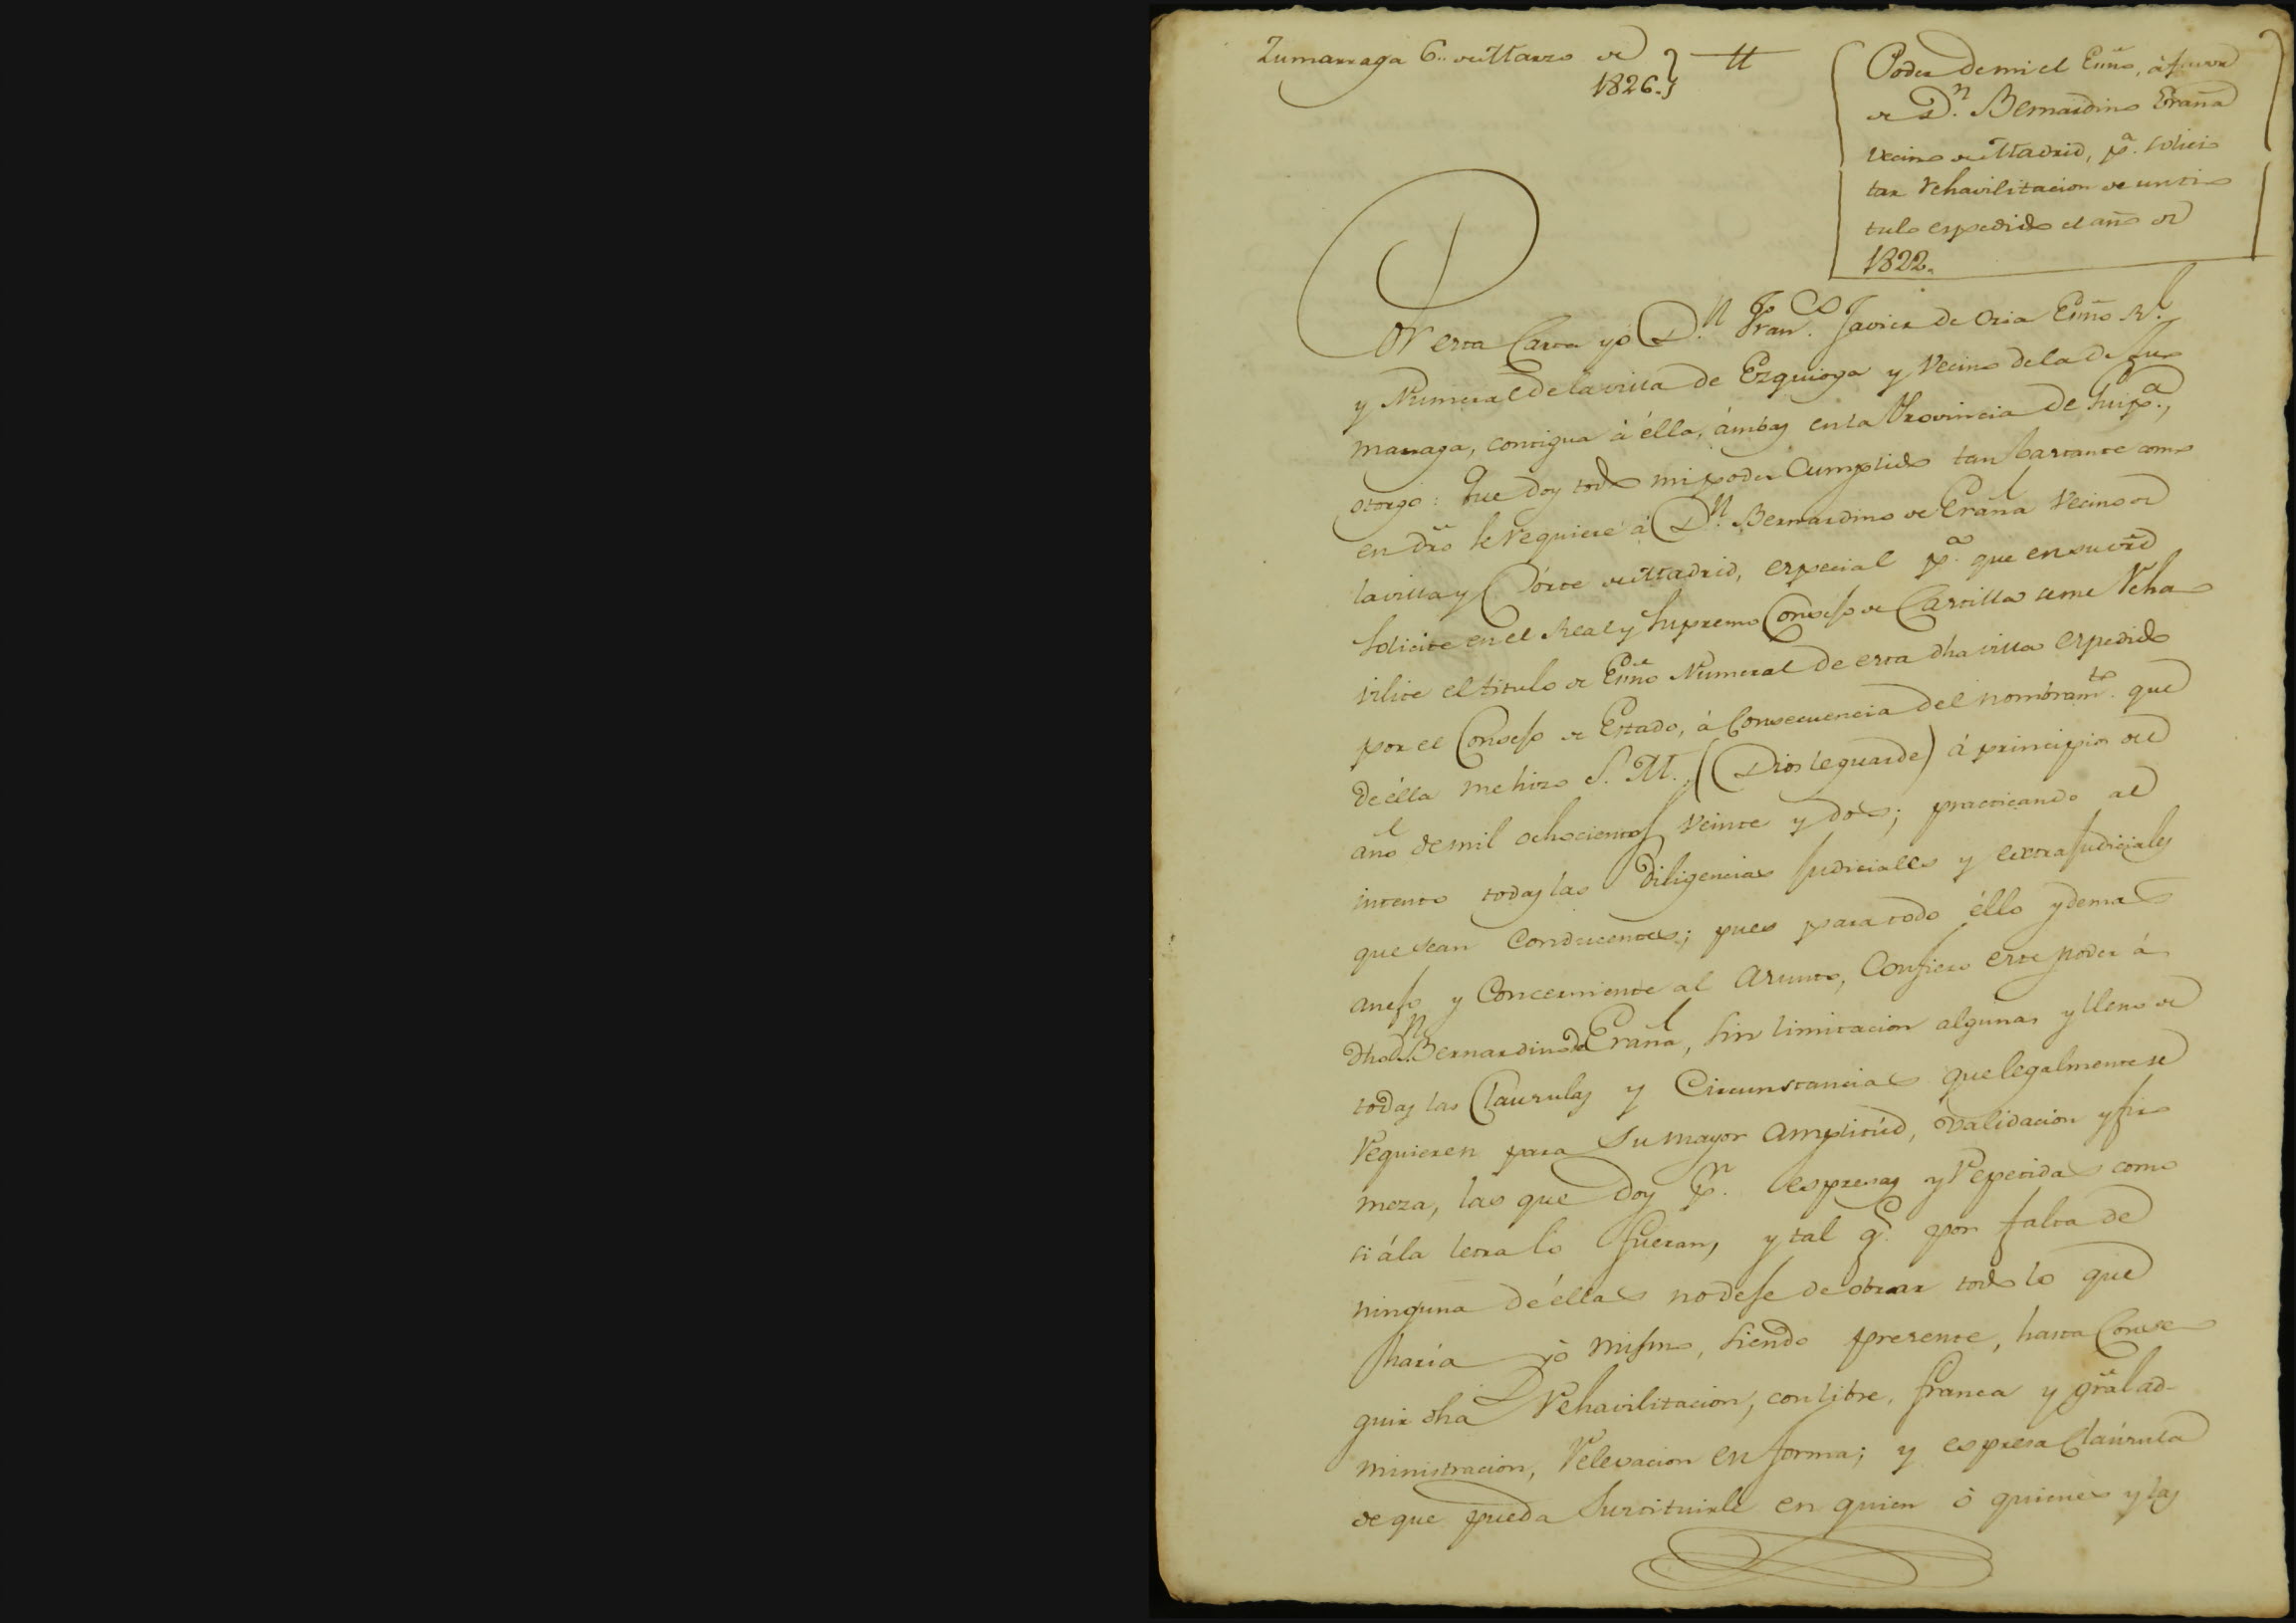 Zumarraga 6,, de Marzo de
1826.
Poder de mi el Eŝñno, á favor
de D.n Bernardino Eraña
vecino de Madrid, p.a solici
tar rehavilitacion de un ti
tulo espedido el año de
1822.
Por esta Carta yo D.n Fran.co Javier de Oria Eŝñno R.l
y Numeral de la villa de Ezquioga y vecino de la de Zu
marraga, contigua á élla, ámbas en la Provincia de Guip.a,
otorgo: Que doy todo mi poder Cumplido tan bastante como
en dr̃o se requiere á D.n Bernardino de Eraña vecino de
la villa y Córte de Madrid, especial p.a que en su vr̃d
solicite en el Real y Supremo Consejo de Castilla se me reha
vilite el titulo de Eŝñno Numeral de esta dha villa espedido
por el Consejo de Estado, á Consecuencia del nombram.to que
de élla me hizo S. M. (Dios le guarde) á principios del
año de mil ochocientos veinte y dos; practicando al
intento todas las diligencias judiciales y extrajudiciales
que sean Conducentes; pues para todo éllo y demas
anejo y Concerniente al asunto, Confiero este poder á
dho D.n Bernardino de Eraña, sin limitacion alguna, y lleno de
todas las Clausulas y Circunstancias que legalmente se
requieren para su mayor amplitúd, validacion y fir
meza, las que doy p.r espresas y repetidas como
si á la letra lo fueran, y tal q.e por falta de
ninguna de éllas no deje de obrar todo lo que
haria yo mismo, siendo presente, hasta Conse
guir dha rehavilitacion, con libre, franca y gr̃al ad-
ministracion, relevacion en forma; y espresa Claúsula
de que pueda sustituirle en quien ó quienes y las